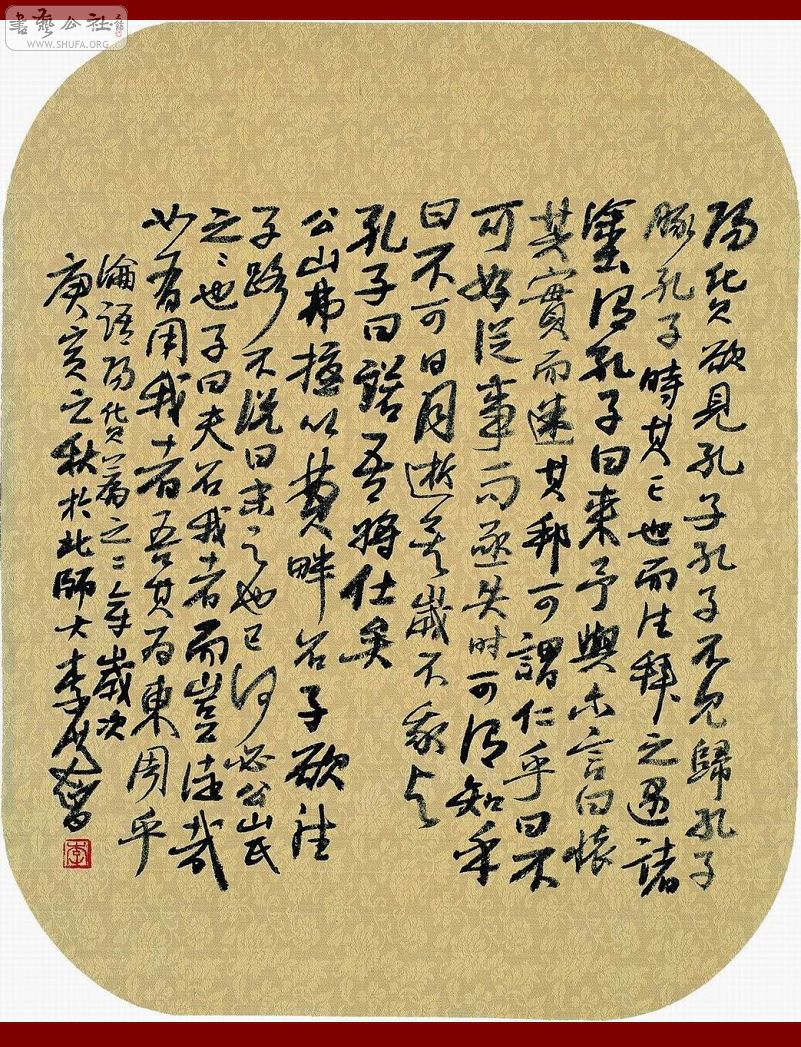 書藝公社
WWW.SHUFA.ORG
陽貨欲見孔子孔子不見歸孔子
豚孔子時其亡也而往拜之遇諸
塗謂孔子曰來予與爾言曰懷
其寶而迷其邦可謂仁乎曰不
可好從事而亟失時可謂知乎
曰不可日月逝矣歲不我與
孔子曰諾吾將仕矣
公山弗擾以費畔召子欲往
子路不說曰末之也已何必公山氏
之之也子曰夫召我者而豈徒哉
如有用我者吾其為東周乎
論語陽貨篇之二章歲次
庚寅之秋於北師大李
李